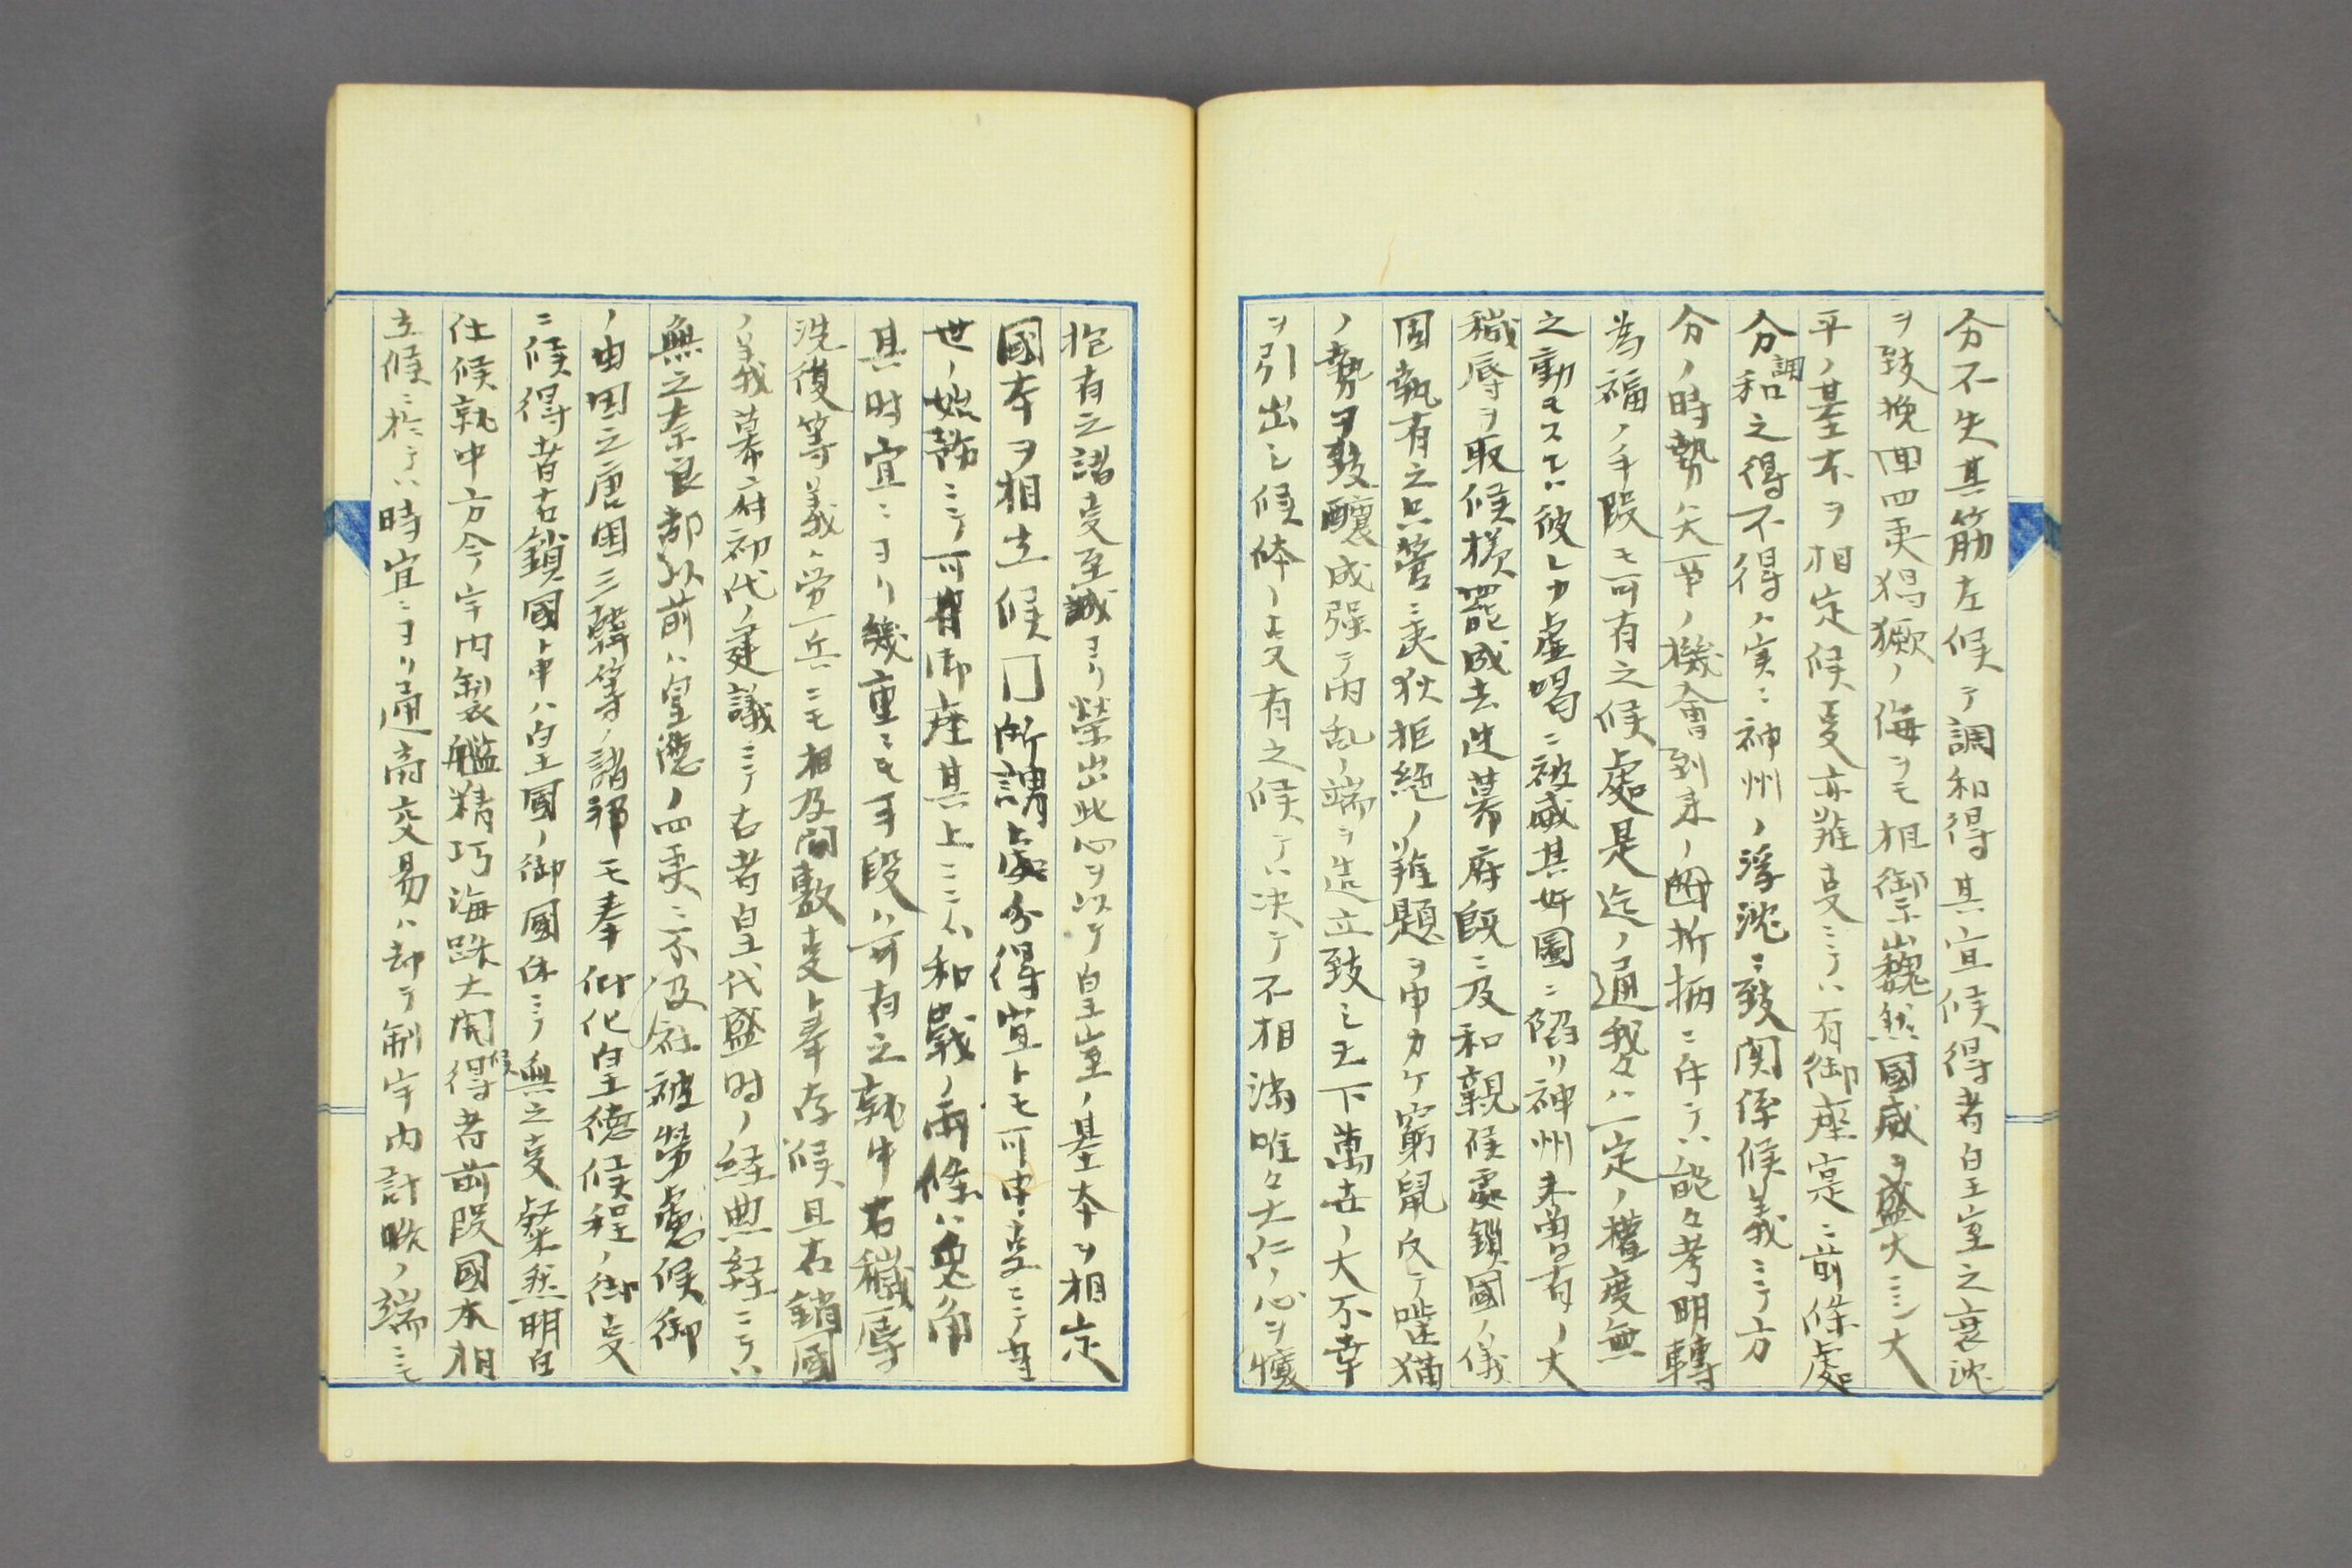 分不失其筋左候テ調和得其宜候得者皇室之衰沈
ヲ致挽回四夷猖獗ノ侮ヲモ相御禦巍然國威ヲ盛大ニシ大
平ノ基本ヲ相定候事亦難事ニテハ有御座寔ニ前條處
分調和之得不得ハ実ニ神州ノ浮沈ニ致関係候義ニテ方
分ノ時勢矢節ノ機會到来ノ折柄ニ付テハ能々考明轉
為福ノ手段モ可有之候處是迄ノ通我々ハ一定ノ權度無
之動モスレハ彼レカ虚喝ニ被威其奸圖ニ陥リ神州未曽有ノ大
穢辱ヲ取候様罷成去迚幕府既ニ及和親候處鎖國ノ儀
固執有之只管ニ夷狄拒絶ノ難題ヲ申カケ窮鼠ノ反テ噬猫
ノ勢ヲ致釀成强テ内乱ノ端ヲ造立致シ天下萬世ノ大不幸
ヲ引出シ候体ノ事有之候テハ決テ不相濟唯々大仁ノ心ヲ懐
抱有之諸事至誠ヨリ出此心ヲ以テ皇室ノ基本ヲ相定
國本ヲ相立候所謂處分得宜トモ可申事ニテ
世ノ始ニテ可有御座其上ニハ和戦ノ両條ハ兎角
其時宜ニヨリ幾重ニモ手段ハ可有之就中右穢辱
洗復等義ハ労一兵ニモ相及間敷事ト奉存候且右鎖國
ノ義幕府初代ノ建議ニテ右者皇代盛時ノ経典経ニテハ
無之奈良都以前ハ皇德ノ四夷ニ不及被勞慮候御
ノ由因之唐国三韓等ノ諸邦モ奉仰化皇德候程ノ御事
ニ候得者右鎖國ト申ハ皇國ノ御國体ニテ無之事粲然明白
仕候就中方今宇内製艦精巧海路大開候得者前段國本相
立候ニ於テハ時宜ニヨリ通商交易ハ却テ制宇内計略ノ端ニモ